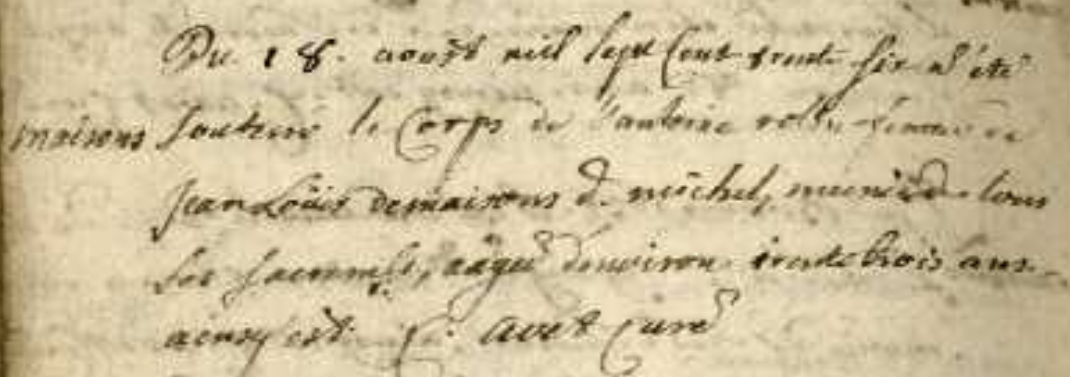 Du 18. aoust mil sept cent trente six a été
maisons Soubterré le Corps de l'antoine femme de
jean Loüis demaisons d. michel, munie de tous
les sacremts, aâgée denviron trente trois ans
ainsy est. avet Curé